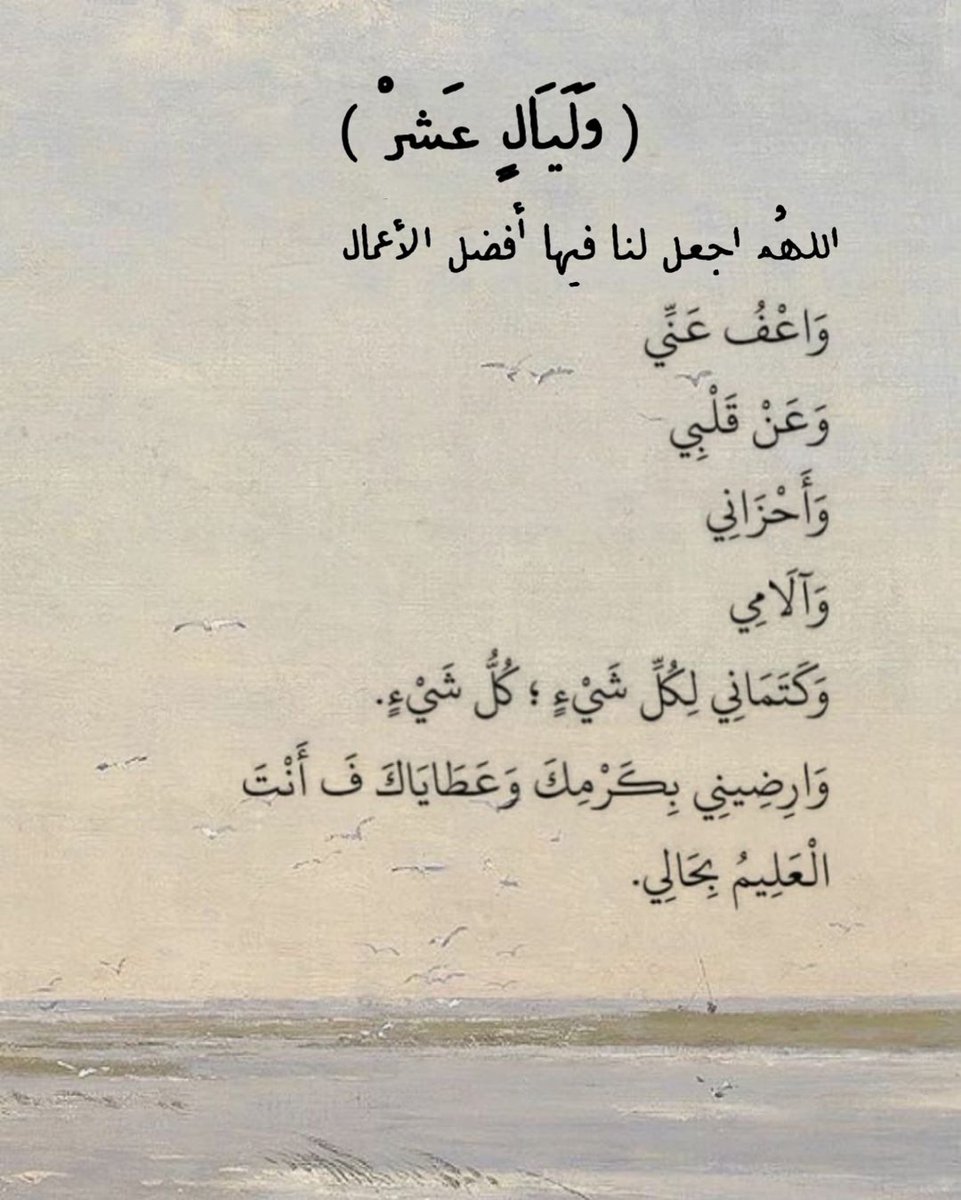 ( وَلَيَالٍ عَشرْ )
اللهُم اجعل لنا فيها أفضل الأعمال
وَاعْفُ عَنِّي
وَعَنْ قَلْبِي
وَأَحْزَانِي
وَآلَامِي
وَكَتَمَانِي لِكُلِّ شَيْءٍ ؛ كُلُّ شَيْءٍ.
وَارِضِينِي بِكَرْمِكَ وَعَطَايَاكَ فَ أَنْتَ
الْعَلِيمُ بِحَالِي.